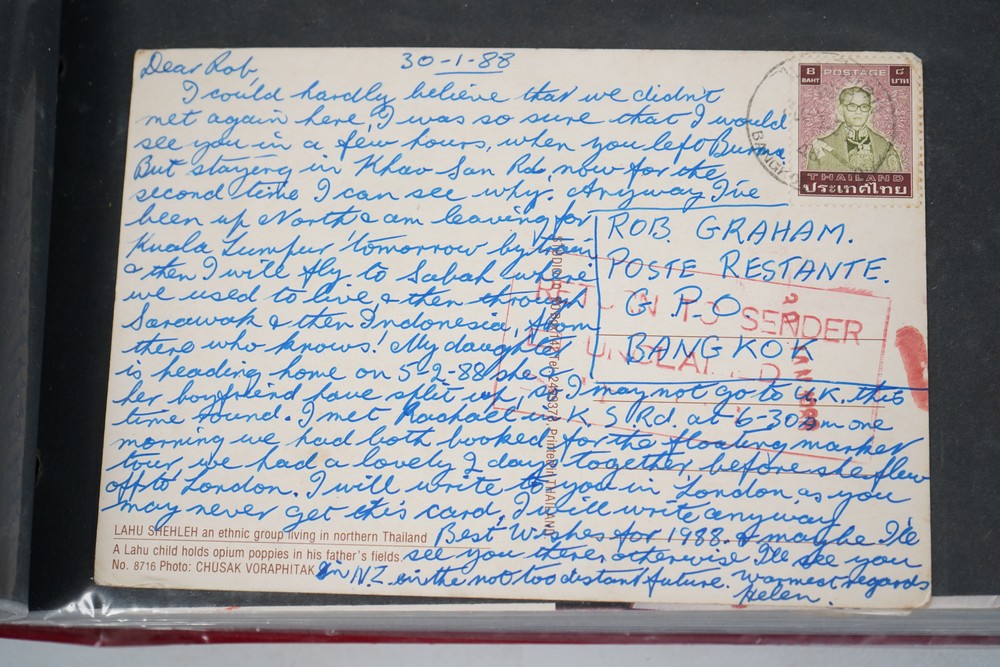 30-1-88
Dear Rob,
I could hardly believe that we didn't
met again here, I was so sure that I would
see you in a few hours, when you left Burma.
But staying in Khao San Rd, now for the
second time I can see why. Anyway I've
been up North & am leaving for
Kuala Lumpur tomorrow by train
& then I will fly to Sabah where
we used to live, & then through
Sarawak & then Indonesia, from
there who knows! My daughter
is heading home on 5-2-88 she &
her boyfriend have split up, so I may not go to U.K. this
time round. I met Rachael in K.S Rd. at 6-30am one
morning we had both booked for the floating market
tour, we had a lovely 2 days together before she flew
off to London. I will write to you in London, as you
may never get this card, I will write anyway
Best Wishes for 1988. & maybe I'le
see you there, otherwise I'le see you
in N.Z. in the not too distant future. Warmest regards
Helen.
ROB GRAHAM.
POSTE RESTANTE.
G.P.O
BANGKOK
8 POSTAGE ๘
BAHT บาท
THAILAND
ประเทศไทย
RETURN TO SENDER
UNCLAIMED
Printed in THAILAND
LAHU SHEHLEH an ethnic group living in northern Thailand
A Lahu child holds opium poppies in his father's fields
No. 8716 Photo: CHUSAK VORAPHITAK